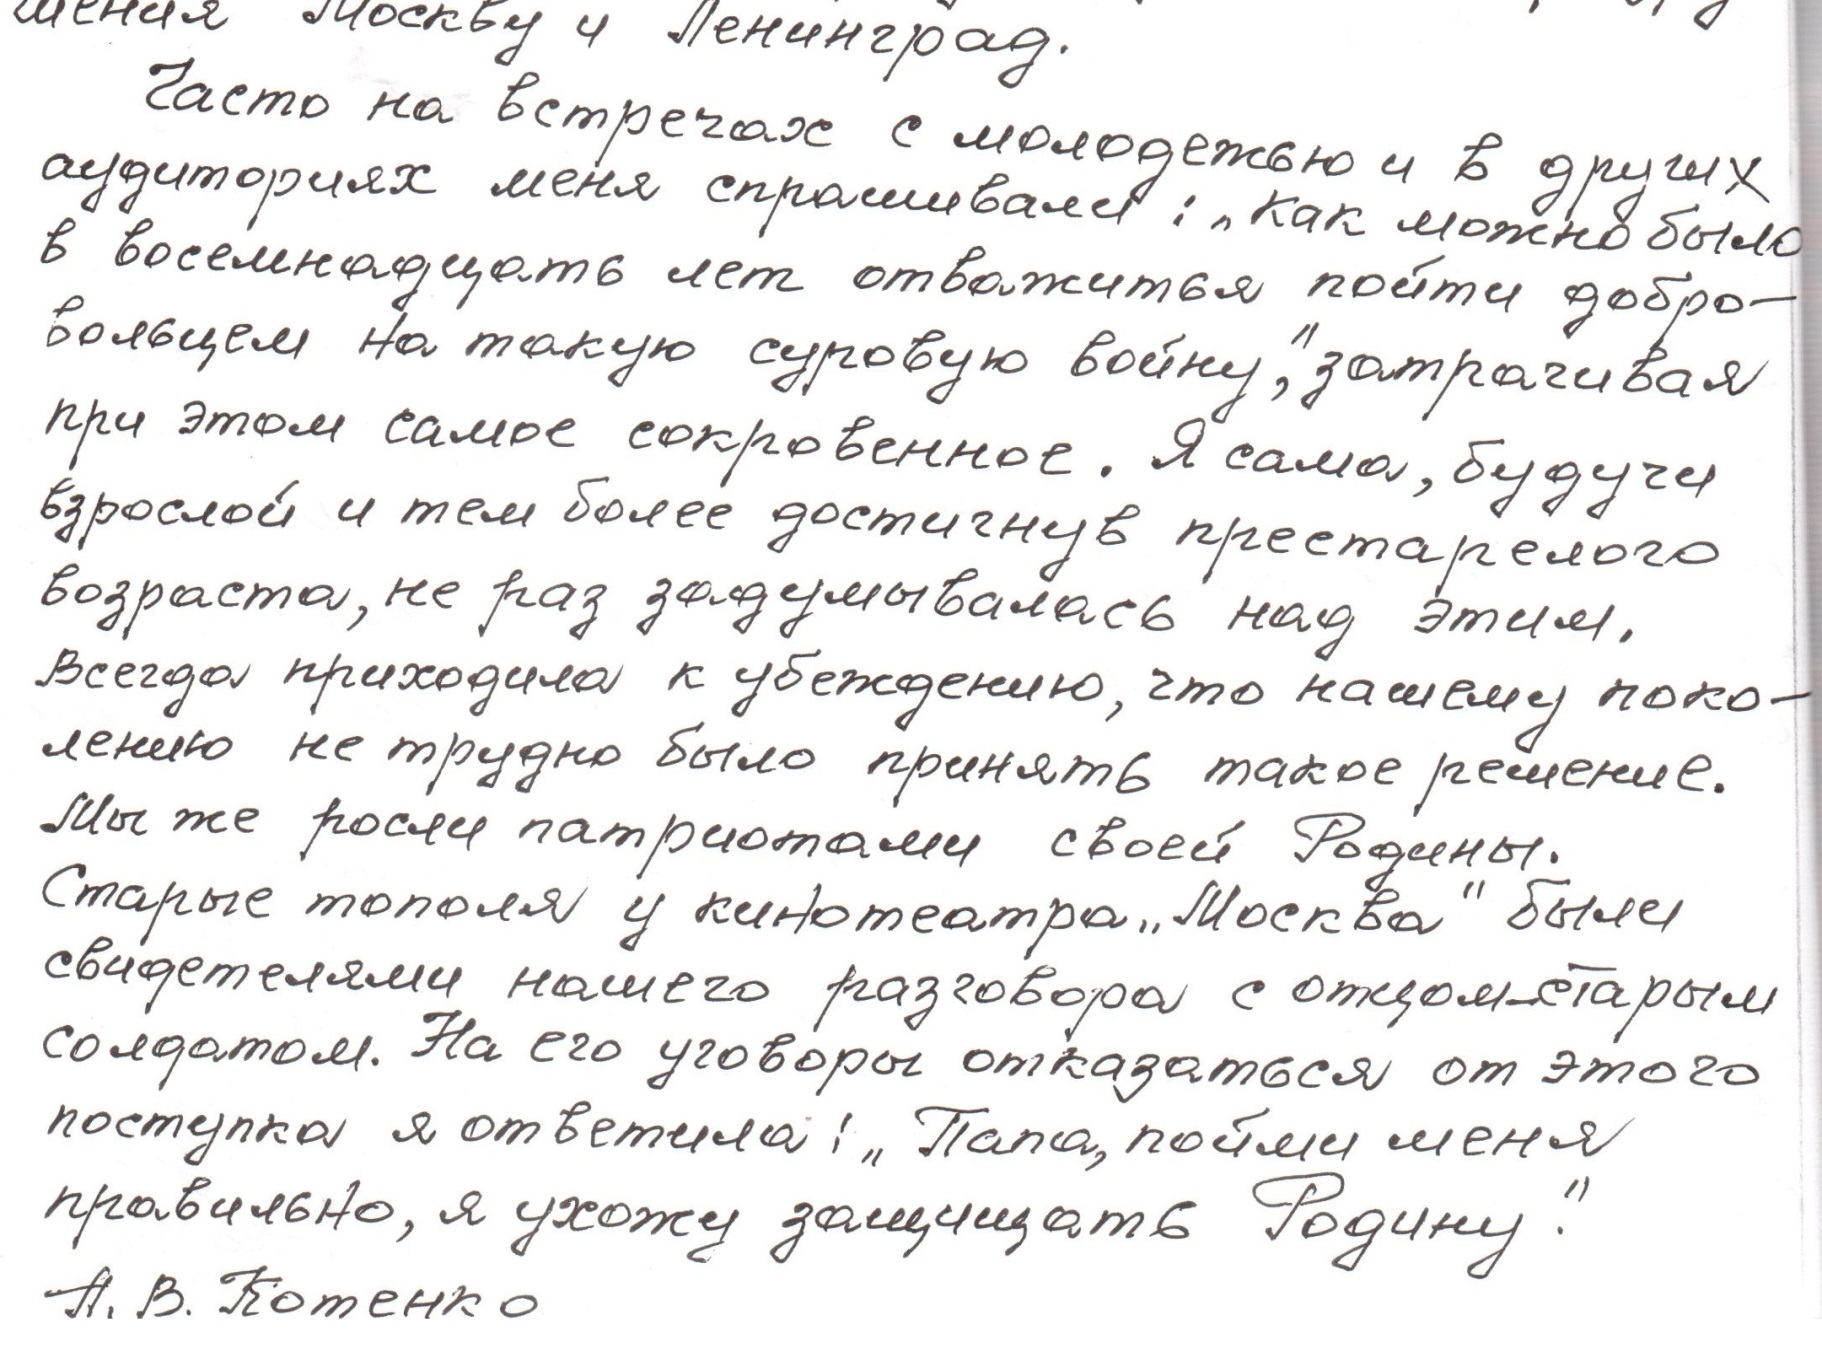 шения Москву и Ленинград.
Часто на встречах с молодежью и в других
аудиториях меня спрашивали: „Как можно было
в восемнадцать лет отважиться пойти добро-
вольцем на такую суровую войну," затрачивая
при этом самое сокровенное. Я сама, будучи
взрослой и тем более достигнув престарелого
возраста, не раз задумывалась над этим.
Всегда приходила к убеждению, что нашему поко-
лению не трудно было принять такое решение.
Мы же росли патриотами своей Родины.
Старые тополя у кинотеатра „Москва" были
свидетелями нашего разговора с отцом-старым
солдатом. На его уговоры отказаться от этого
поступка я ответила: „Папа, пойми меня
правильно, я ухожу защищать Родину."
А. В. Котенко